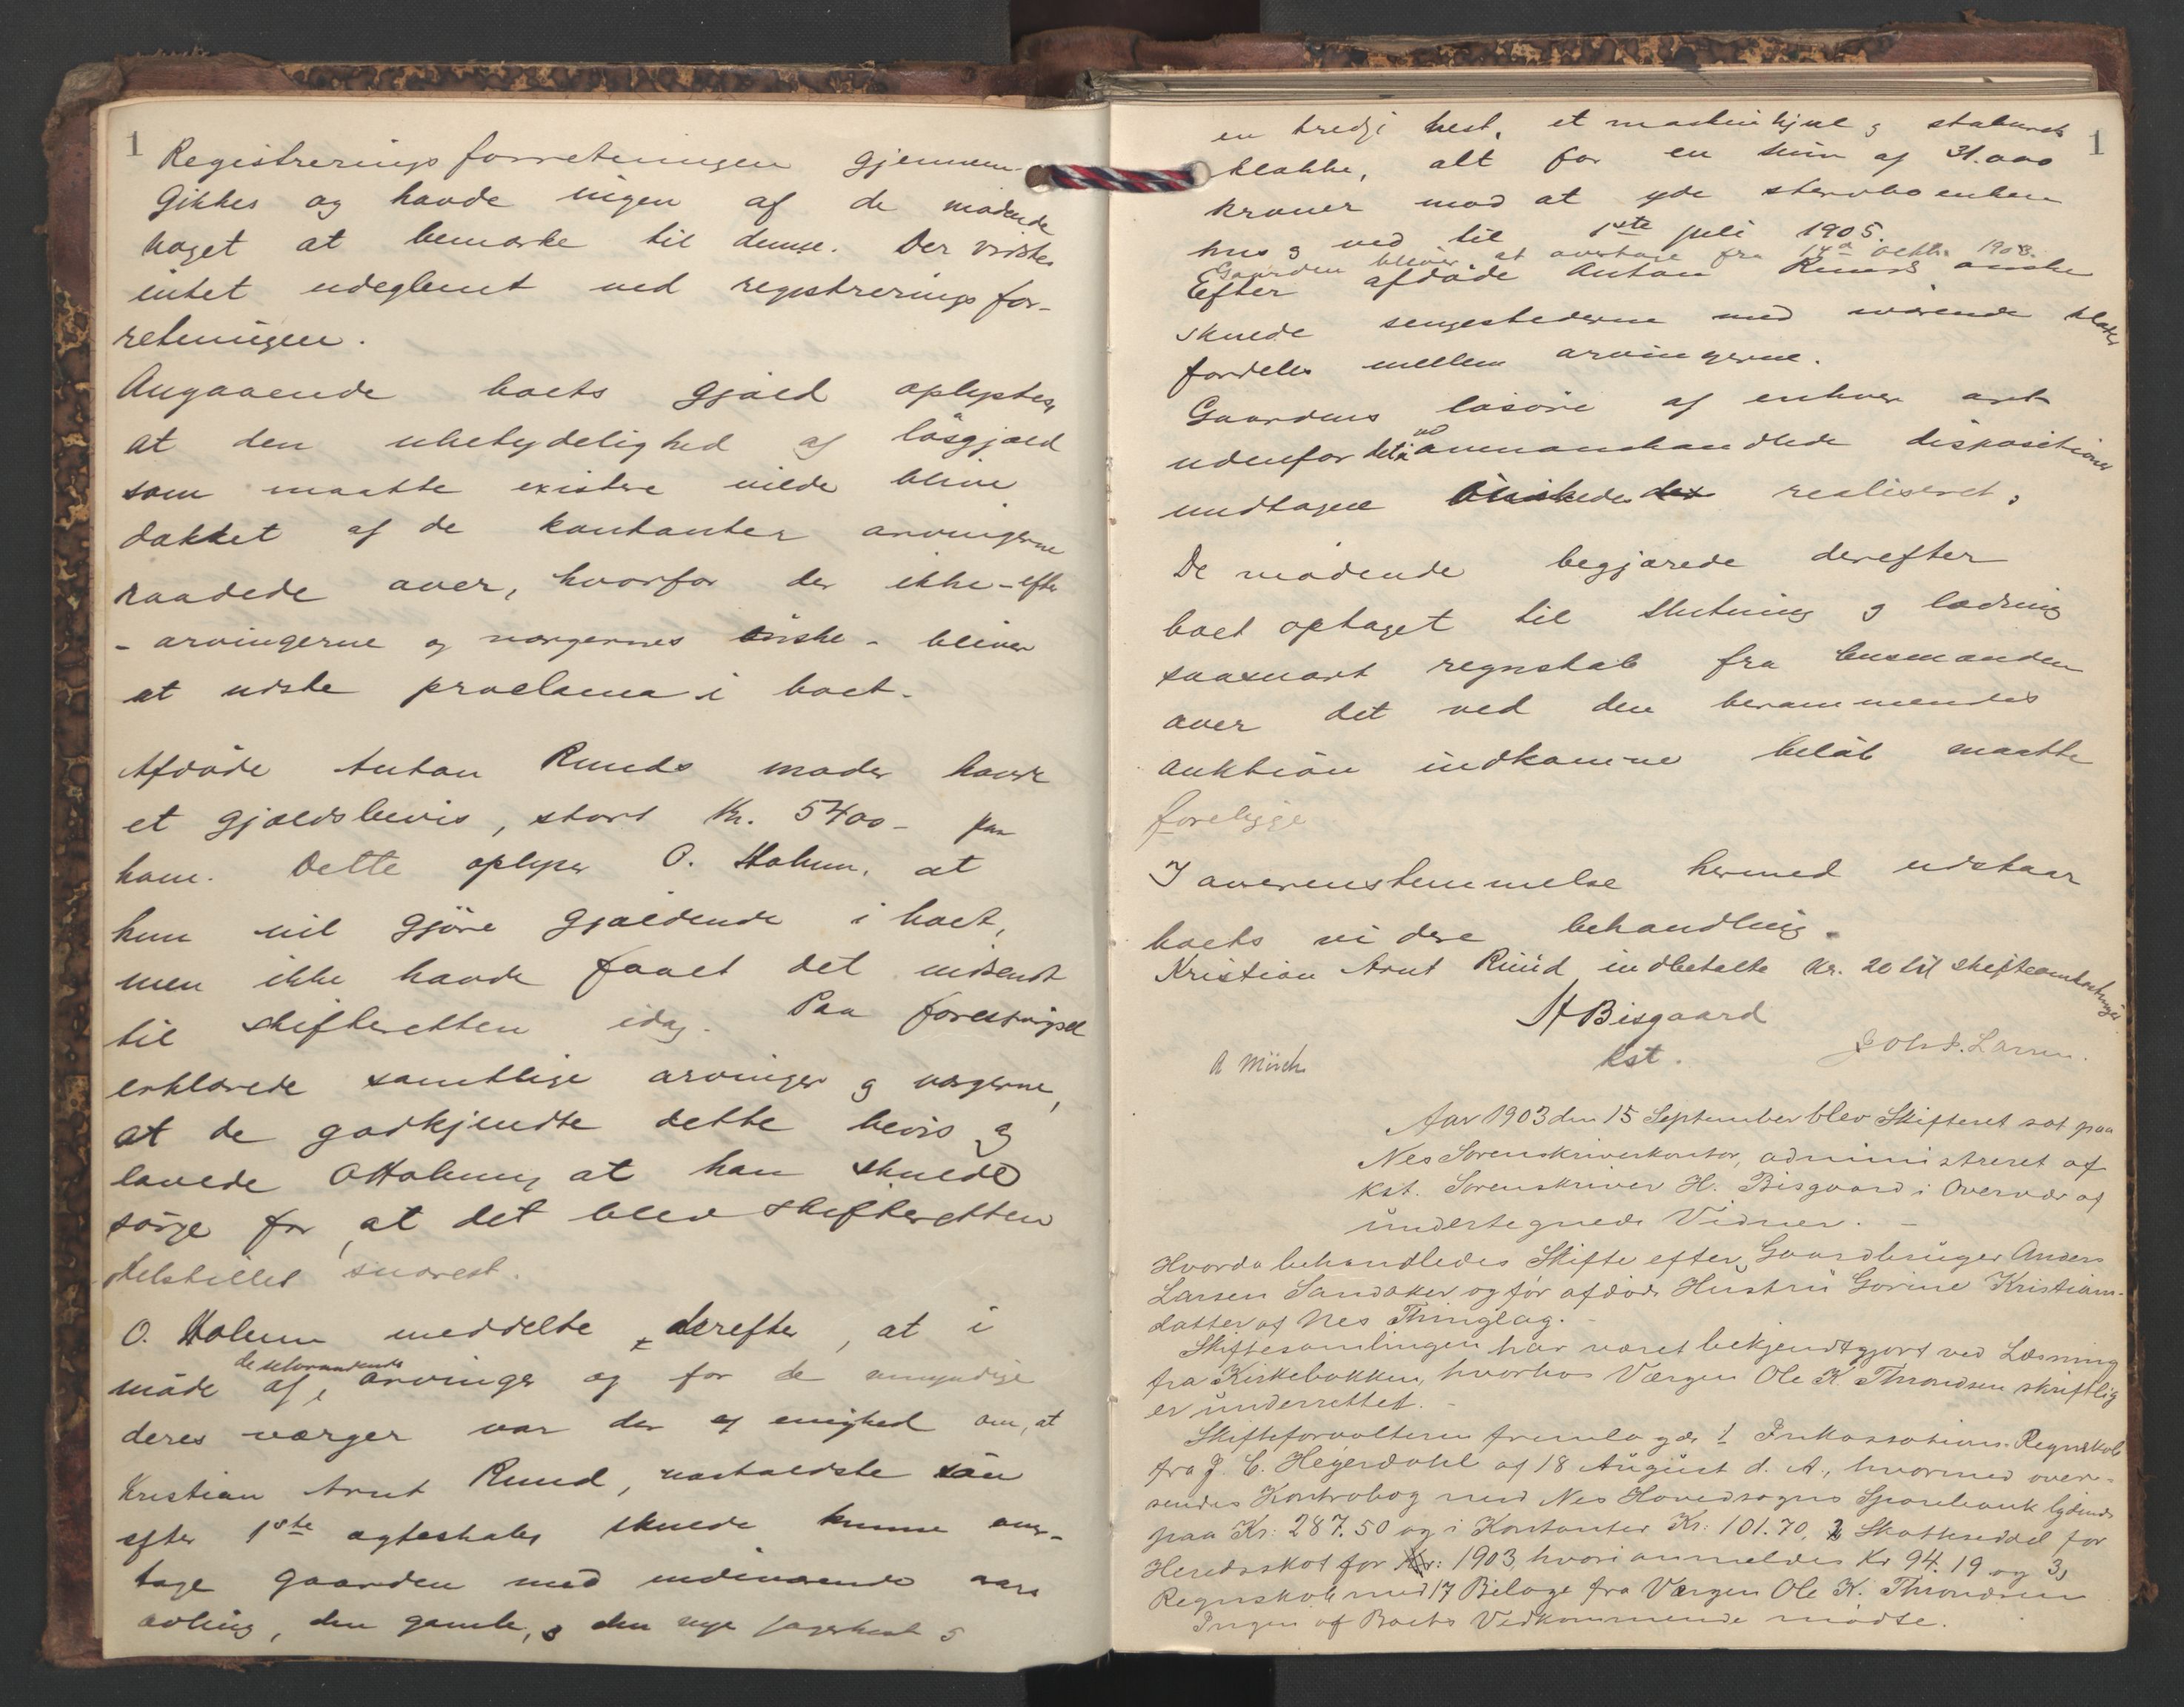 1
Registreringsforretningen gjennem-
gikkes og havde ingen af de mødende
noget at bemærke til denne. Der vidstes
intet udeglemt ved registreringsfor-
retningen.
Angaaende boets gjæld oplystes,
at den ubetydelighed af løsgjæld
som maatte existere vilde blive
dækket af de kontanter arvingerne
raadede over, hvorfor der ikke - efter
- arvingerne og værgernes ønske - bliver
at udste proclama i boet.
Afdøde Anton Ruuds moder havde
et gjældsbevis, stort Kr. 5400 - paa
ham. Dette oplyser O. Holum, at
hun vil gjøre gjældende i boet,
men ikke havde faaet det indsendt
til skifteretten idag. Paa forespørgsel
erklærede samtlige arvinger og værgerne,
at de godkjendte dette bevis og
lovede O Holum, at han skulde
sørge for, at det blev skifteretten
tilstillet snarest.
O. Holum meddelte derefter, at i
møde af, arvinger og for de umyndige
deres værger var der enighed om, at
Kristian Arnt Ruud, næstældste søn
efter 1ste ægteskab, skulde kunne over-
tage gaarden med indeværende aars
avling, den gamle, & den nye
1
en tredje hest, et maskinhjul & stabur
klokke, alt for en sum af 31.000
kroner mod at yde stervboenken
hus & ved til 1ste juli 1905.
Gaarden bliver at overtage fra 14de oktbr. 1903.
Efter afdøde Anton Ruuds ønske
skulde sengestederne med værende klæder
fordeles mellem arvingerne.
Gaardens løsøre af enhver art
udenfor det ommanhandlede dispositioner
undtagne ønskedes realiseret.
De mødende begjærede derefter
boet optaget til slutning & lodning
saasnart regnskab fra lensmanden
over det ved den berammendes
auktion indkomne beløb maatte
foreligge
I overensstemmelse hermed udstaar
boets videre behandling.
Kristian Arnt Ruud indbetalte kr. 20 til skifteomkostninger.
H Bisgaard
kst.
A Mürch
Joh. L. Larsen.
Aar 1903 den 15 September blev Skifteret sat paa
Nes Sorenskriverkontor, administreret af
kst. Sorenskriver H. Bisgaard i Overvær af
undertegnede Vidner. -
Hvorda behandledes Skifte efter Gaardbruger Anders
Larsen Sandaker og før afdøde Hustru Gorine Kristians-
datter af Nes Thinglag. -
Skiftesamlingen har været bekjendtgjort ved Læsning
fra Kirkebakken, hvorhos Værgen Ole K. Throndsen skriftlig
er underrettet. -
Skifteforvalteren fremlagde 1 Inkassations-Regnskab
fra J. C. Hegerdahl af 18 August d. A., hvormed over-
sendes Kontrabog med Nes Hovedsogns Sparebank lydende
paa Kr: 287.50 og i Kontanter Kr: 101.70, 2 Skatteseddel for
Heredsskat for 1903, hvori anmeldes Kr 94.19 og 3,
Regnskab med 17 Bilage fra Værgen Ole K. Throndsen
Ingen af Boets Vedkommende mødte.